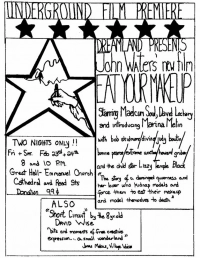 UNDERGROUND FILM PREMIERE
DREAMLAND PRESENTS
John Waters' new film
EAT YOUR MAKEUP
Starring Maelcum Soul, David Lochary
and introducing Marina Melin
with bob skidmore/divine/judy boutin/
bonnie pearce/extreme unction/howard gruber/
and the child star Lizzy Temple Black
"The story of a deranged governess and
her lover who kidnap models and
force them to eat their makeup
and model themselves to death."
TWO NIGHTS ONLY!!
Fri + Sat Feb 23rd, 24th
8 and 10 P.M.
Great Hall - Emmanuel Church
Cathedral and Read Sts
Donation 99¢
ALSO
"Short Circuit" by the 8 yr old
Davis Wise
"bits and moments of true creative
expression... a small wonderland"
Jonas Mekas, Village Voice